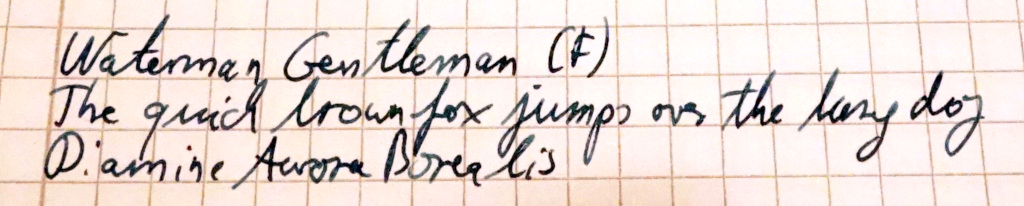 Waterman Gentleman (F)
The quick brown fox jumps over the lazy dog
Diamine Aurora Borealis